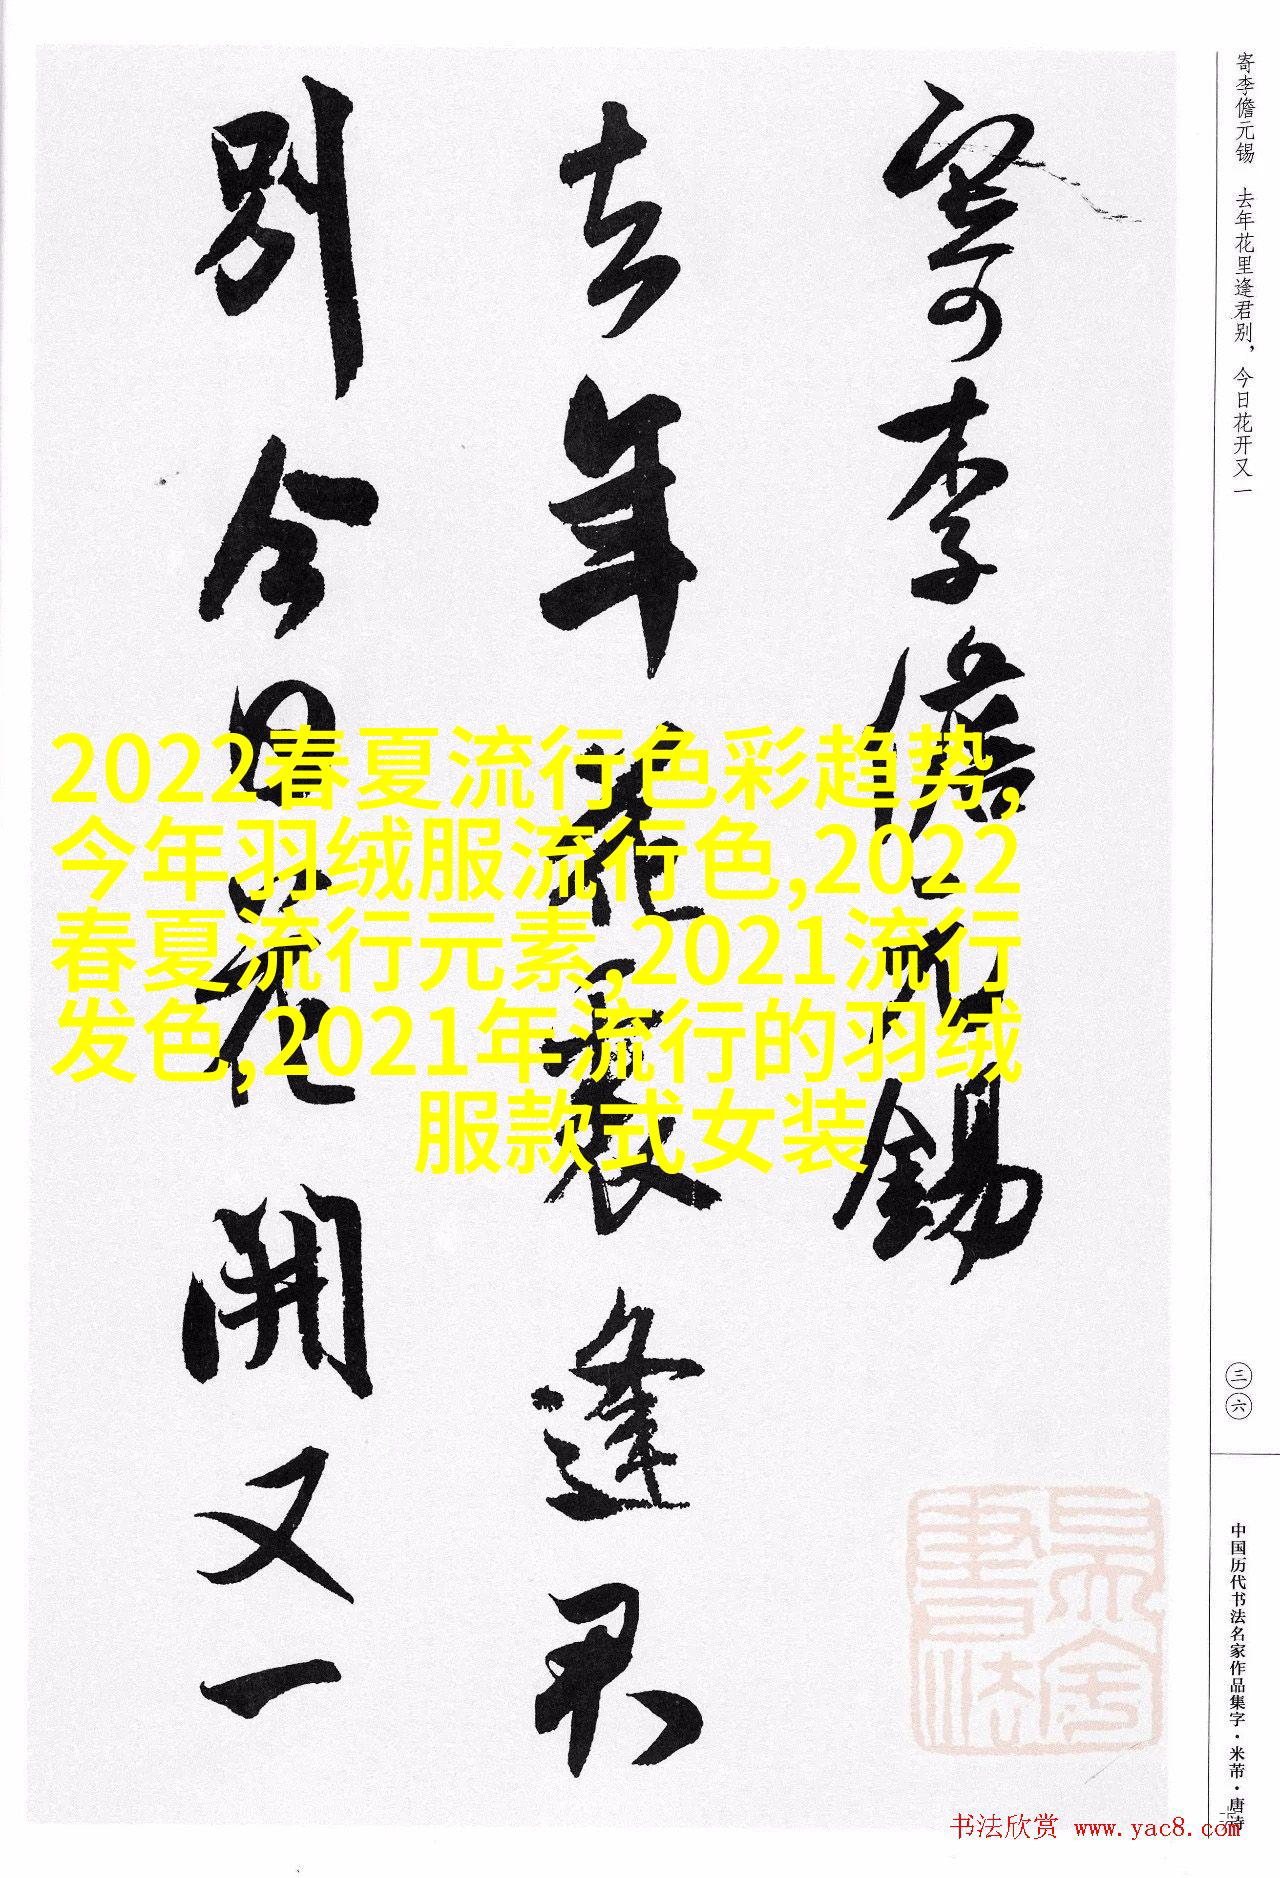 寄李儋元锡　去年花里逢君别，今日花开又一
寄李儋元锡
去年花裏逢君
别今日花開又一
2022春夏流行色彩趋势,
今年羽绒服流行色,2022
春夏流行元素,2021流行
发色,2021年流行的羽绒
服款式女装
三六
中国历代书法名家作品集字·米芾·唐诗
书法欣赏 www.yac8.com